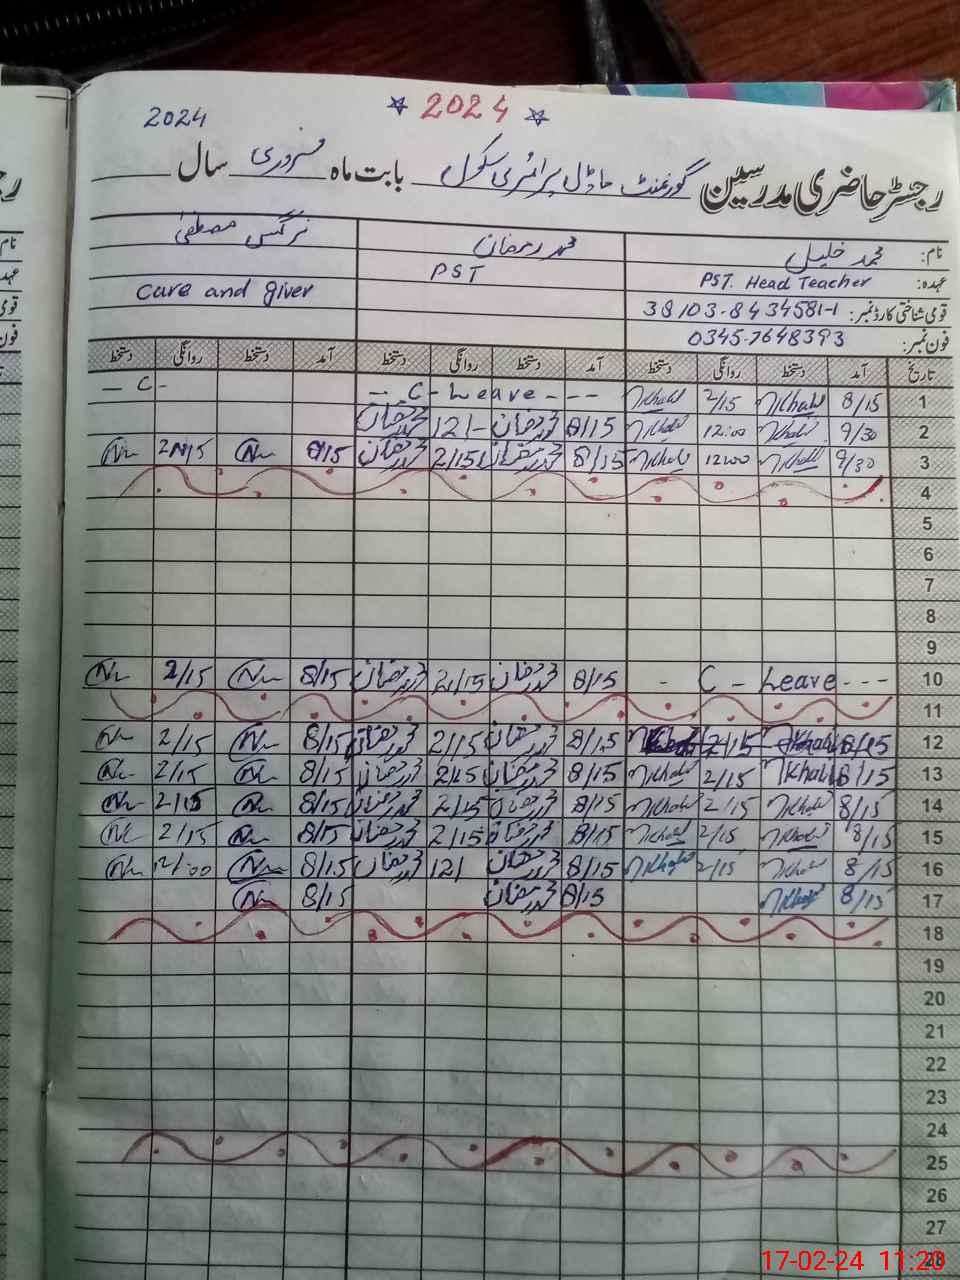 ☆ 2024 ☆
2024
رجسٹر حاضری مدرسین گورنمنٹ ماڈل پرائمری سکول بابت ماہ فروری سال
نام: محمد خلیل محمد رمضان نرگس مصطفیٰ
عہدہ: PST. Head Teacher PST Care and giver
قومی شناختی کارڈ نمبر: 38103-8434581-1
فون نمبر: 0345-7648393
تاریخ آمد دستخط روانگی دستخط آمد دستخط روانگی دستخط آمد دستخط روانگی دستخط
1 8/15 Khalil 2/15 Khalil -- C - Leave --- - C -
2 9/30 Khalil 12:00 Khalil 8/15 محمد رمضان 12/- محمد رمضان
3 9/30 Khalil 12:00 Khalil 8/15 محمد رمضان 2/15 محمد رمضان 8/15 2/15
4
5
6
7
8
9
10 - C - Leave --- 8/15 محمد رمضان 2/15 محمد رمضان 8/15 2/15
11
12 8/15 Khalil 2/15 8/15 محمد رمضان 2/15 محمد رمضان 8/15 2/15
13 8/15 Khalil 2/15 Khalil 8/15 محمد رمضان 2/15 محمد رمضان 8/15 2/15
14 8/15 Khalil 2/15 Khalil 8/15 محمد رمضان 2/15 محمد رمضان 8/15 2/15
15 8/15 Khalil 2/15 Khalil 8/15 محمد رمضان 2/15 محمد رمضان 8/15 2/15
16 8/15 Khalil 2/15 Khalil 8/15 محمد رمضان 12/ محمد رمضان 8/15 12/:00
17 8/15 Khalil 8/15 محمد رمضان 8/15
18
19
20
21
22
23
24
25
26
27
28
17-02-24 11:20